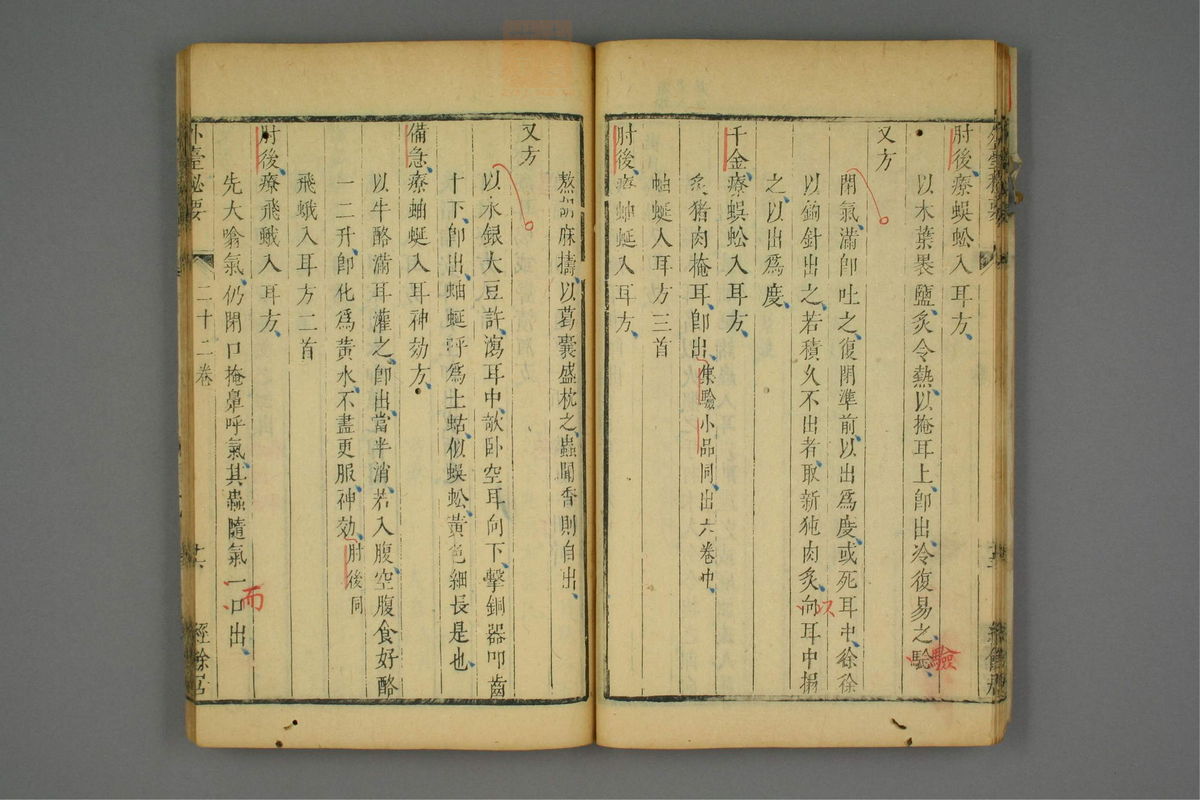 肘後療蜈蚣入耳方
以木葉裹鹽炙令熱以掩耳上卽出冷復易之驗
驗
又方
閉氣滿卽吐之復閉準前以出爲度或死耳中徐徐
以鉤針出之若積久不出者取新㹠肉炙向耳中搨
以
之以出爲度
千金療蜈蚣入耳方
炙猪肉掩耳卽出集驗小品同出六卷中
蚰蜒入耳方三首
肘後療蚰蜒入耳方
熬胡麻擣以葛囊盛枕之蟲聞香則自出
又方
以水銀大豆許瀉耳中欹卧空耳向下擊銅器叩齒
十下卽出蚰蜒呼爲土蛄似蜈蚣黃色細長是也
備急療蚰蜒入耳神効方
以牛酪滿耳灌之卽出當半消若入腹空腹食好酪
一二升卽化爲黃水不盡更服神効肘後同
飛蛾入耳方二首
肘後療飛蛾入耳方
先大噏氣仍閉口掩鼻呼氣其蟲隨氣一口出
而
外臺祕要
二十二卷
經餘居